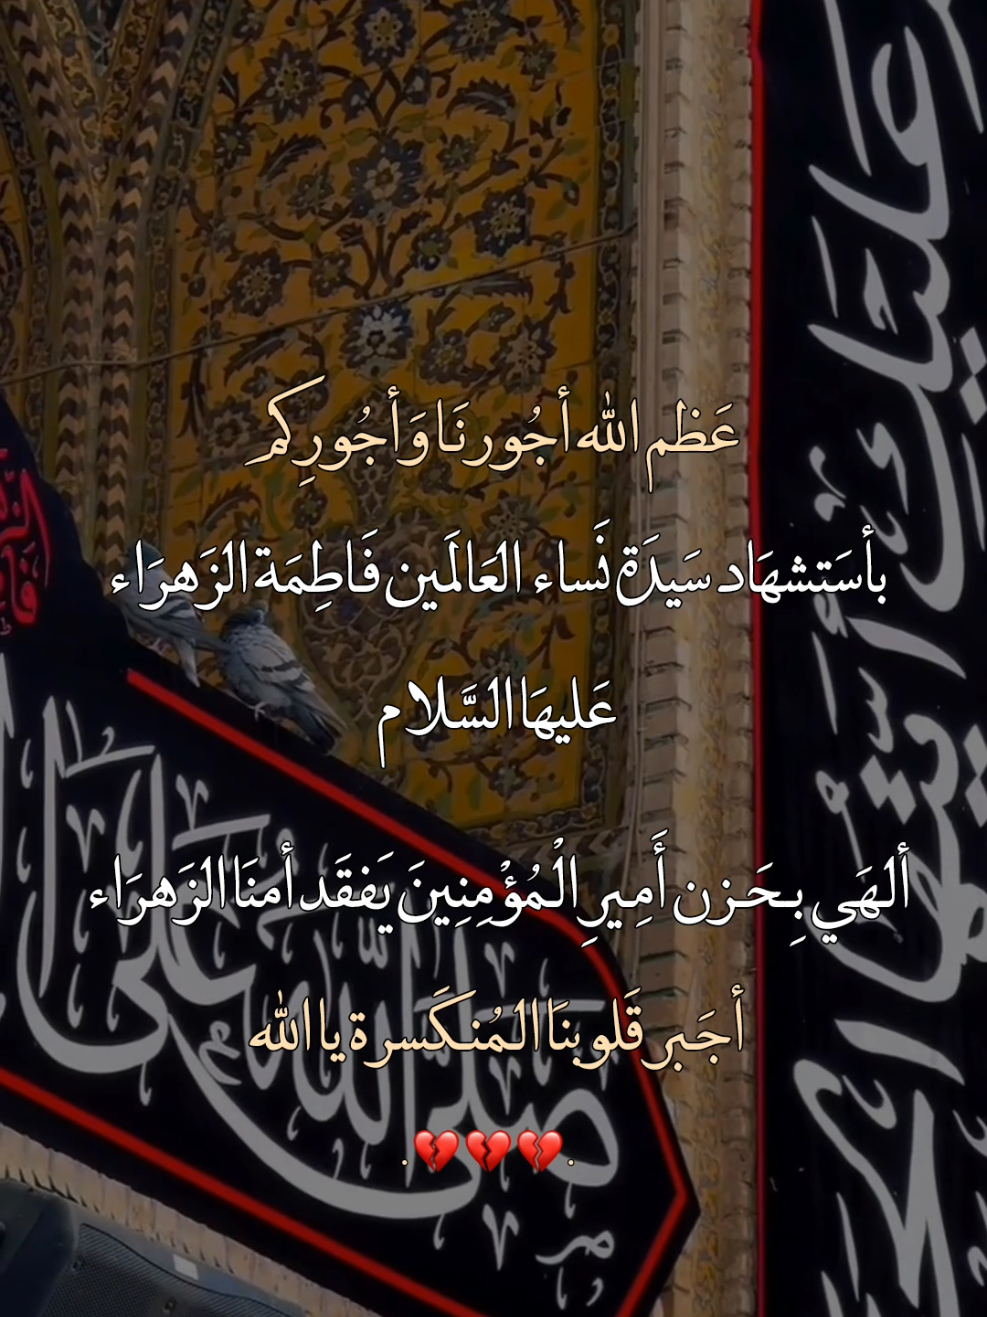 عَظم الله أجُورنَا وَأجُورِكم
بأستشهَاد سَيدَة نَساء العَالمَين فَاطِمَة الزَهرَاء
عَليهَا السَّلام
ألهَي بِحَزن أَمِيرِ الْمُؤْمِنِينَ يَفقَد أمنَا الزَهرَاء
أجَبر قَلوبنَا المُنكَسرة يا الله
💔💔💔
صلى الله على
عليك أيتها